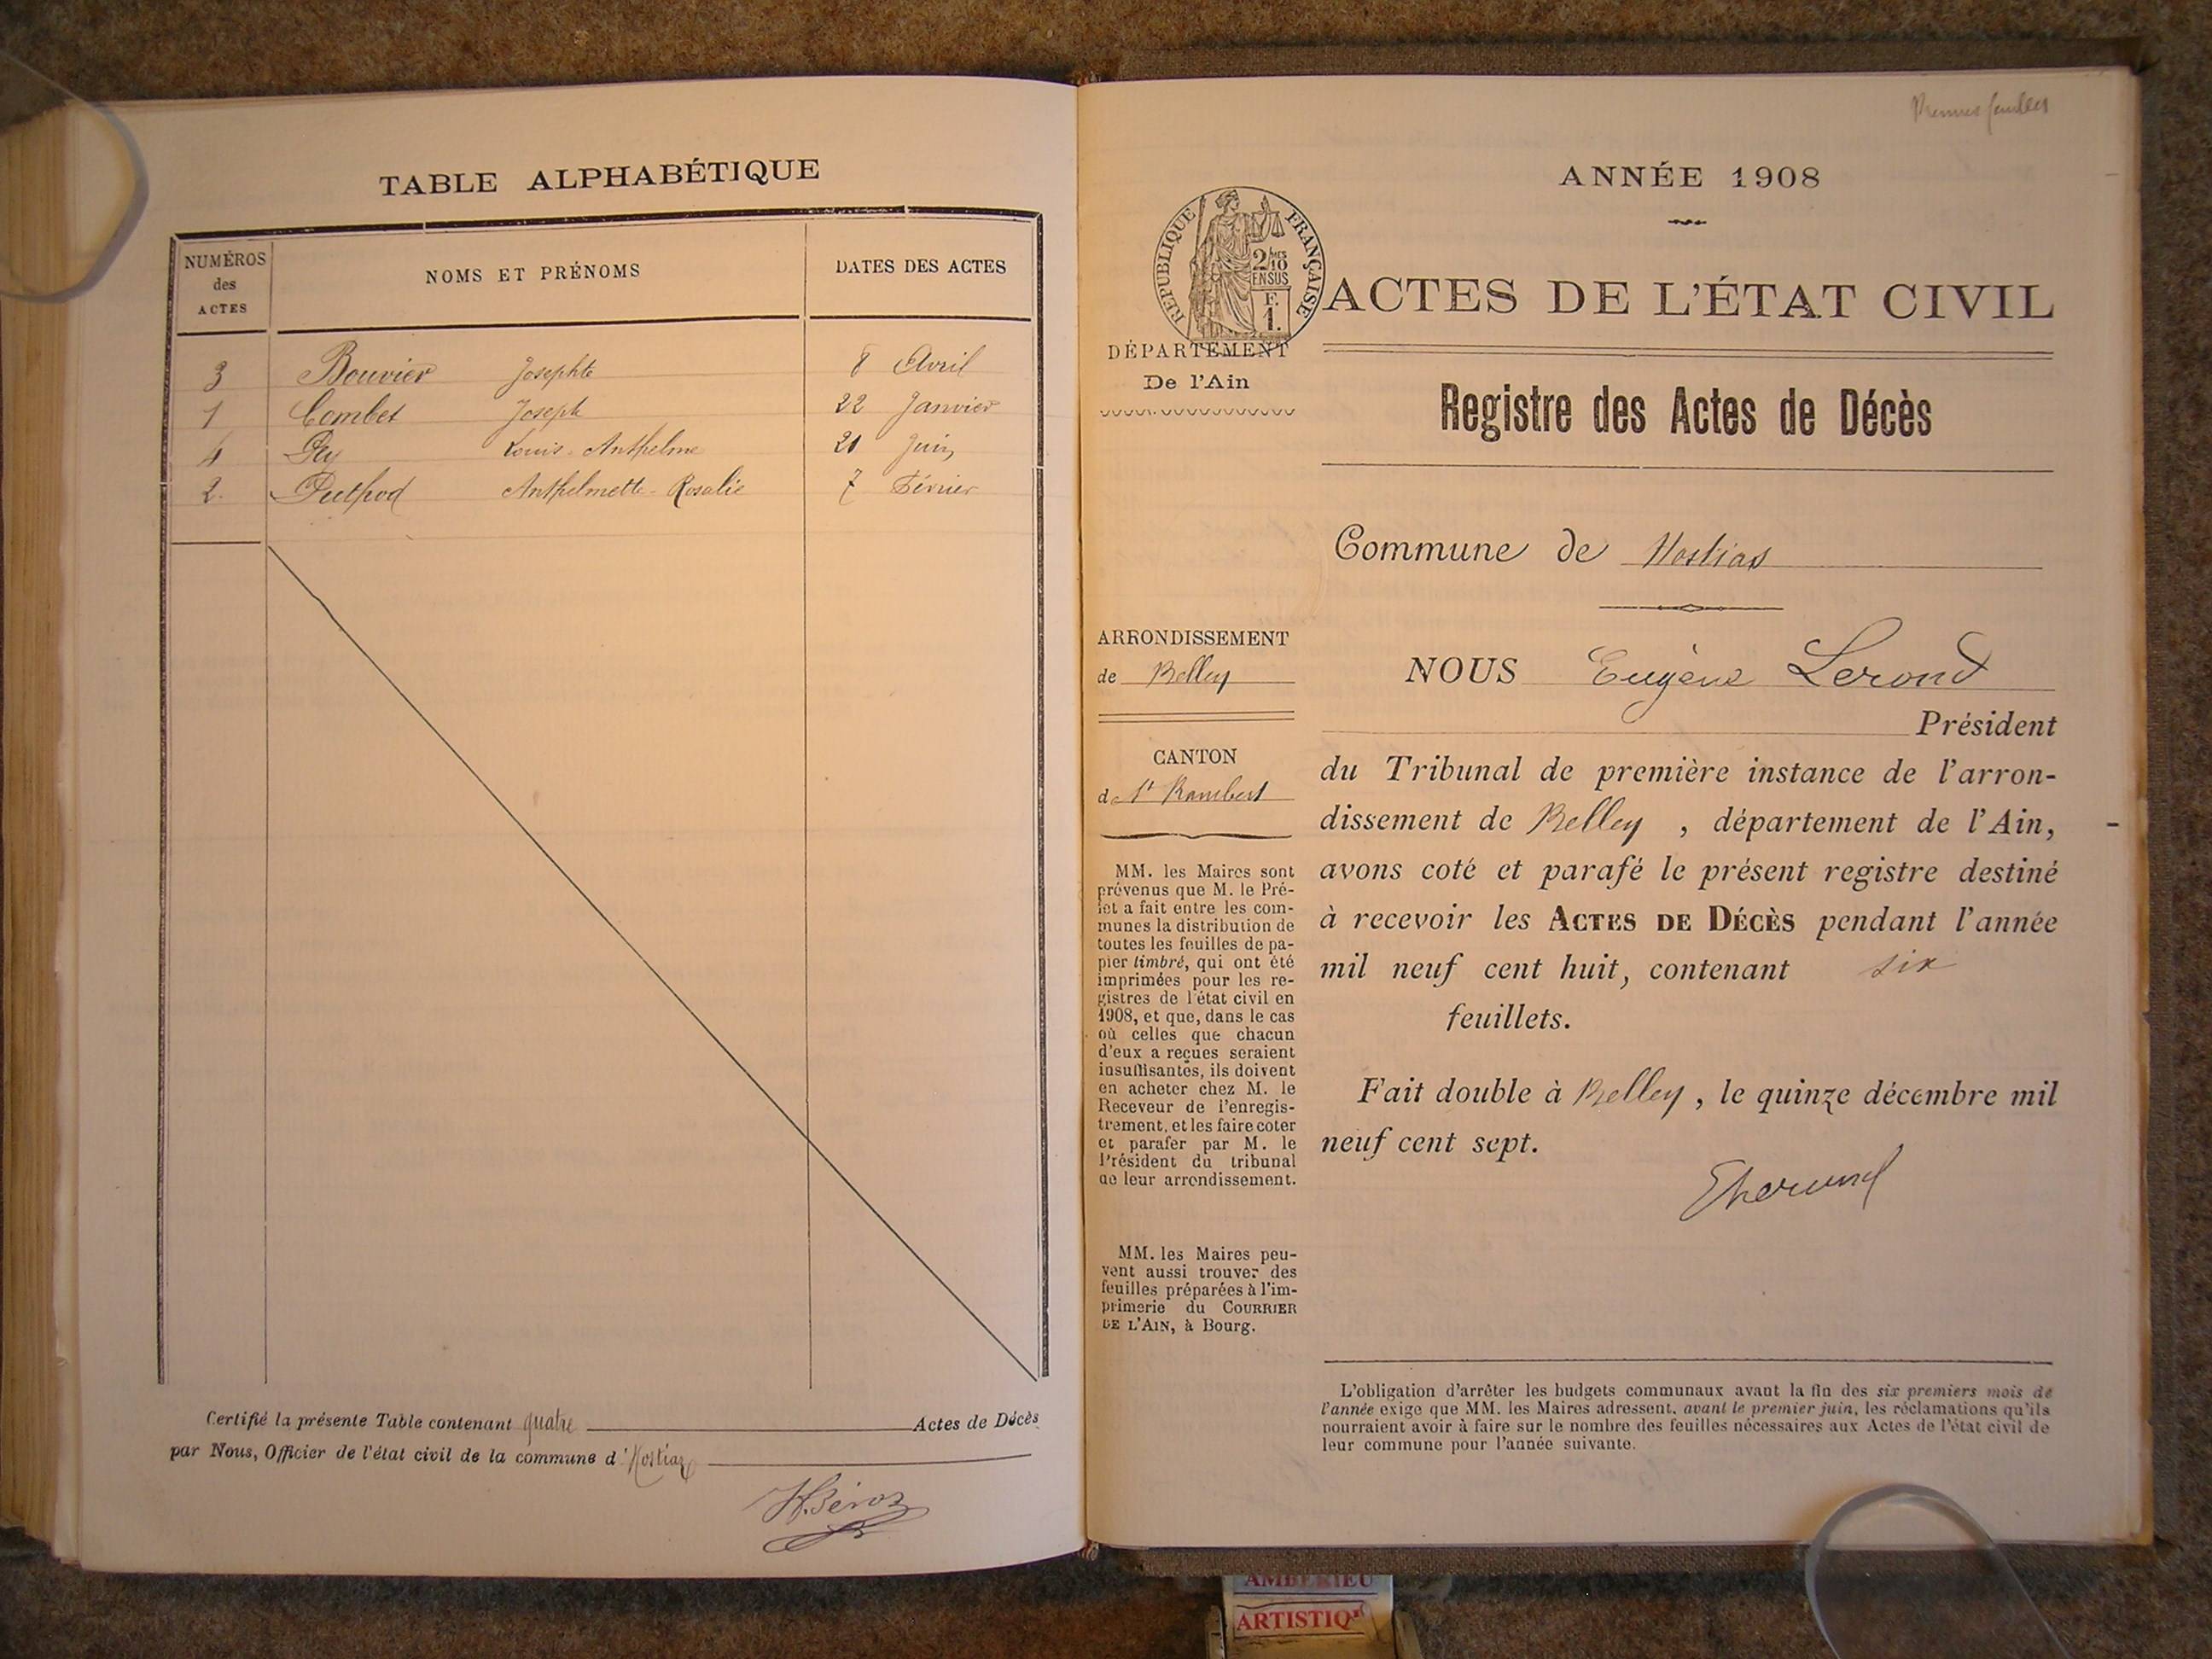 TABLE ALPHABÉTIQUE
NUMÉROS
des
ACTES
NOMS ET PRÉNOMS
DATES DES ACTES
3 Bouvier Josephte 8 Avril
1 Combet Joseph 22 Janvier
4 Gey Louis-Anthelme 21 Juin
2. Puthod Anthelmette-Rosalie 7 Février
Certifié la présente Table contenant quatre Actes de Décès
par Nous, Officier de l'état civil de la commune d'Hostiaz
Premier feuillet
ANNÉE 1908
RÉPUBLIQUE FRANÇAISE
2/10
EN SUS
F.
1.
ACTES DE L'ÉTAT CIVIL
DÉPARTEMENT
De l'Ain
Registre des Actes de Décès
Commune de Hostias
ARRONDISSEMENT
de Belley
CANTON
de St Rambert
MM. les Maires sont
prévenus que M. le Pré-
fet a fait entre les com-
munes la distribution de
toutes les feuilles de pa-
pier timbré, qui ont été
imprimées pour les re-
gistres de l'état civil en
1908, et que, dans le cas
où celles que chacun
d'eux a reçues seraient
insuffisantes, ils doivent
en acheter chez M. le
Receveur de l'enregis-
trement, et les faire coter
et parafer par M. le
Président du tribunal
de leur arrondissement.
MM. les Maires peu-
vent aussi trouver des
feuilles préparées à l'im-
primerie du COURRIER
DE L'AIN, à Bourg.
NOUS Eugène Lerond
Président
du Tribunal de première instance de l'arron-
dissement de Belley, département de l'Ain,
avons coté et parafé le présent registre destiné
à recevoir les ACTES DE DÉCÈS pendant l'année
mil neuf cent huit, contenant six
feuillets.
Fait double à Belley, le quinze décembre mil
neuf cent sept.
L'obligation d'arrêter les budgets communaux avant la fin des six premiers mois de
l'année exige que MM. les Maires adressent, avant le premier juin, les réclamations qu'ils
pourraient avoir à faire sur le nombre des feuilles nécessaires aux Actes de l'état civil de
leur commune pour l'année suivante.
AMBERIEU
ARTISTIQ